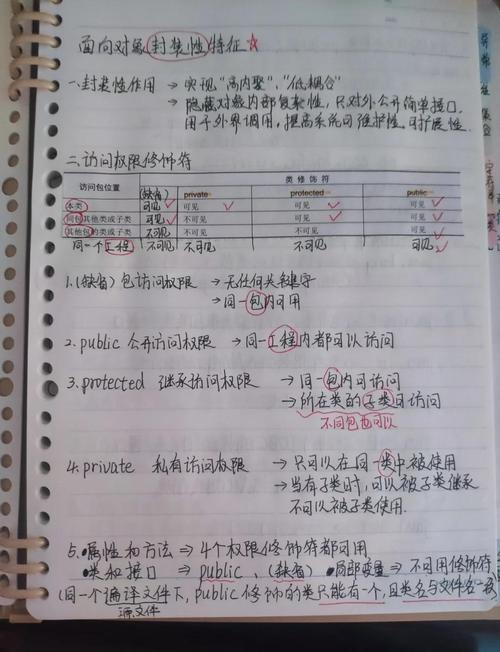 面向对象封装性特征☆
一.封装性作用 → 实现"高内聚","低耦合"
→ 隐藏对象内部复杂性,只对外公开简单接口.
用于外界调用,提高系统可维护性,可扩展性
二.访问权限修饰符
访问包位置 类修饰符
(缺省) private protected public
本类 可见✓ 可见✓ 可见✓ 可见✓
同包其他类或子类 可见✓ 不可见 可见✓ 可见✓
其他包的类或子类 不可见 不可见 可见 可见
同一个工程 不可见 不可见 不可见 可见
1.(缺省) 包访问权限 → 无任何关键字
→ 同一包内可用
2. public 公开访问权限 → 同一工程内都可以访问
3. protected 继承访问权限 → 同一包内可访问
→ 所在类的子类可访问
不同包也可以
4. private 私有访问权限 → 只可以在同一类中被使用
→ 当有子类时,可以被子类继承
不可以被子类使用.
5. •属性和方法 ⇒ 4个权限修饰符都可用
•类和接口 ⇒ public、(缺省) •局部变量 ⇒ 不可用修饰符
(同一个编译文件下,public修饰的类只能有一个,且类名与文件名一致
源文件